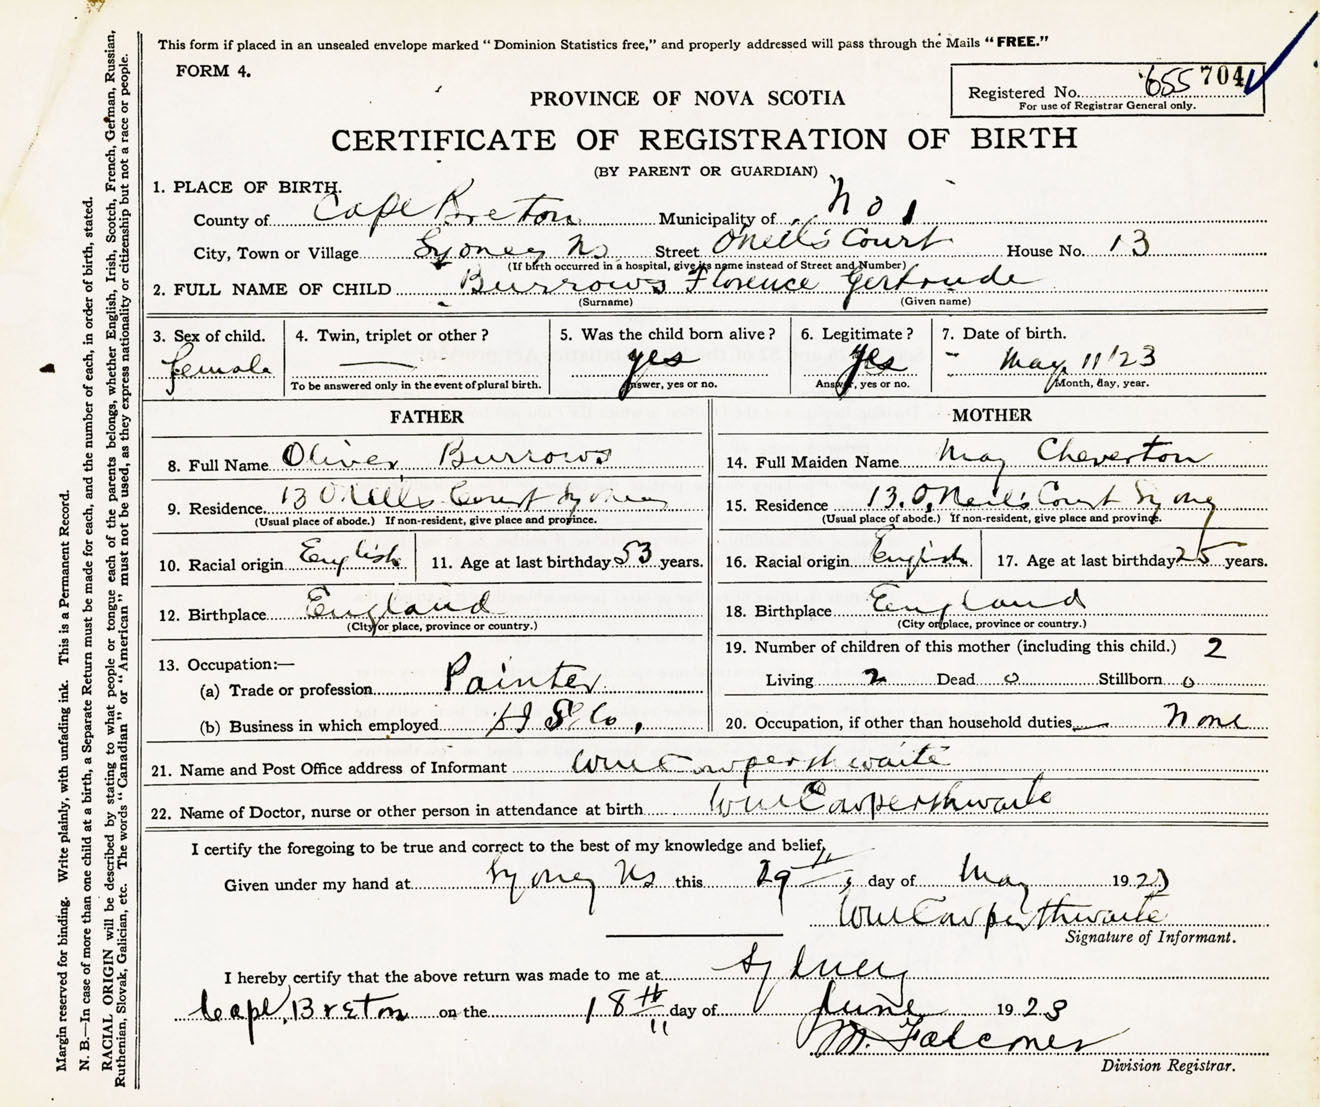 This form if placed in an unsealed envelope marked "Dominion Statistics free," and properly addressed will pass through the Mails "FREE."
FORM 4.
Registered No. 655 704
For use of Registrar General only.
PROVINCE OF NOVA SCOTIA
CERTIFICATE OF REGISTRATION OF BIRTH
(BY PARENT OR GUARDIAN)
1. PLACE OF BIRTH.
County of Cape Breton Municipality of No 1
City, Town or Village Sydney NS Street ONeill's Court House No. 13
(If birth occurred in a hospital, give its name instead of Street and Number)
2. FULL NAME OF CHILD Burrows Florence Gertrude
(Surname) (Given name)
3. Sex of child. 4. Twin, triplet or other? 5. Was the child born alive? 6. Legitimate? 7. Date of birth.
female — yes yes May 11/23
To be answered only in the event of plural birth. Answer, yes or no. Answer, yes or no. Month, day, year.
FATHER MOTHER
8. Full Name Oliver Burrows
14. Full Maiden Name May Cheverton
9. Residence 13 ONeills Court Sydney
(Usual place of abode.) If non-resident, give place and province.
15. Residence 13. O,Neill's Court Sydney
(Usual place of abode.) If non-resident, give place and province.
10. Racial origin English 11. Age at last birthday 53 years.
16. Racial origin English 17. Age at last birthday 25 years.
12. Birthplace England
(City or place, province or country.)
18. Birthplace England
(City or place, province or country.)
13. Occupation:—
(a) Trade or profession Painter
(b) Business in which employed Co,
19. Number of children of this mother (including this child.) 2
Living 2 Dead 0 Stillborn 0
20. Occupation, if other than household duties None
21. Name and Post Office address of Informant Wm Cowperthwaite
22. Name of Doctor, nurse or other person in attendance at birth Wm Cowperthwaite
I certify the foregoing to be true and correct to the best of my knowledge and belief,
Given under my hand at Sydney NS this 29th day of May 1923
Wm Cowperthwaite
Signature of Informant.
I hereby certify that the above return was made to me at Sydney
Cape Breton on the 18th day of June 1923
M. Falconer
Division Registrar.
Margin reserved for binding. Write plainly, with unfading ink. This is a Permanent Record.
N. B.—In case of more than one child at a birth, a Separate Return must be made for each, and the number of each, in order of birth, stated.
RACIAL ORIGIN will be described by stating to what people or tongue each of the parents belongs, whether English, Irish, Scotch, French, German, Russian,
Ruthenian, Slovak, Galician, etc. The words "Canadian" or "American" must not be used, as they express nationality or citizenship but not a race or people.